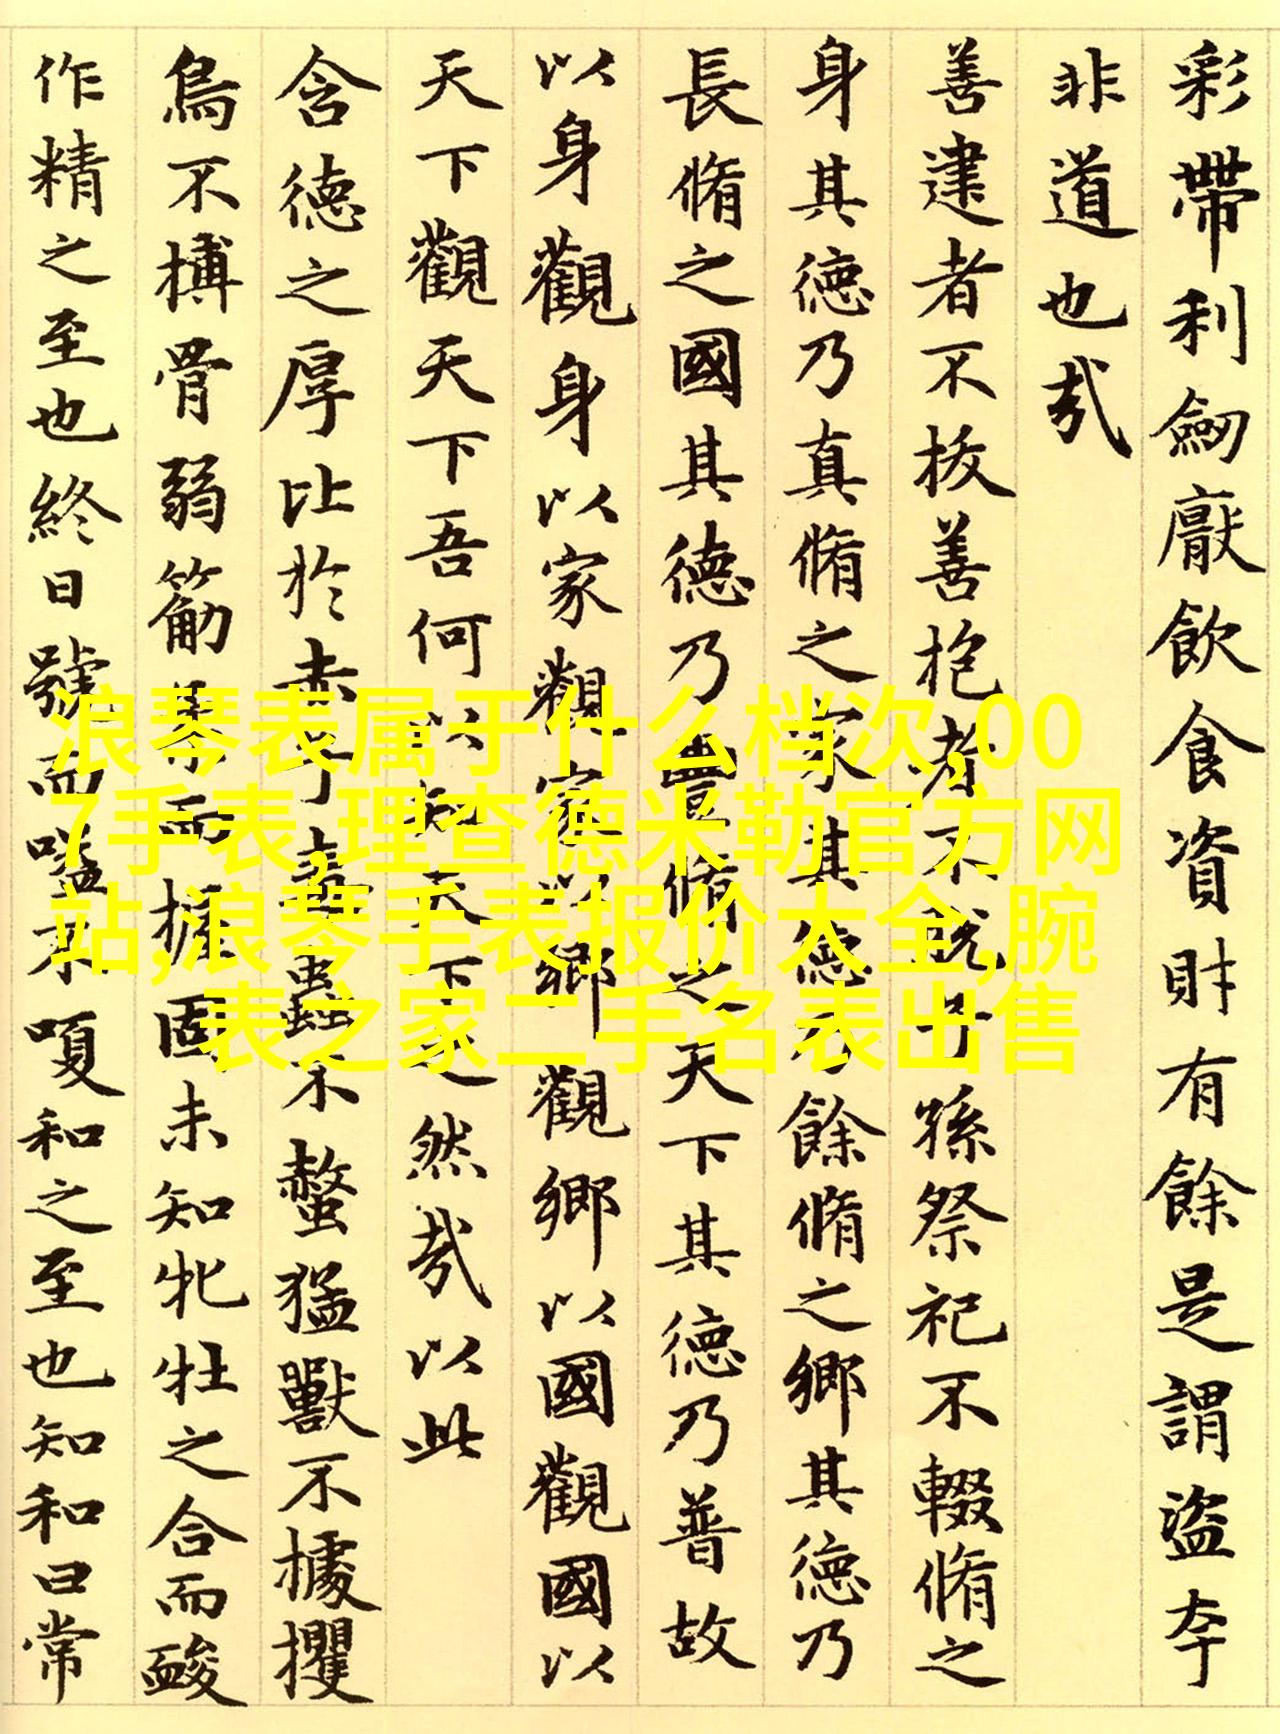 彩帶利劔厭飲食資財有餘是謂盜夸
非道也哉
善建者不拔善抱者不脫子孫祭祀不輟脩之
身其德乃真脩之家其德乃餘脩之鄉其德乃
長脩之國其德乃豐脩之天下其德乃普故
以身觀身以家觀家以鄉觀鄉以國觀國以
天下觀天下吾何以知天下之然哉以此
含德之厚比於赤子毒蟲不螫猛獸不據攫
鳥不搏骨弱筋柔而握固未知牝牡之合而酸
作精之至也終日號而嗌不嗄和之至也知和曰常
浪琴表属于什么档次,00
7手表,理查德米勒官方网
站,浪琴手表报价大全,腕
表之家二手名表出售